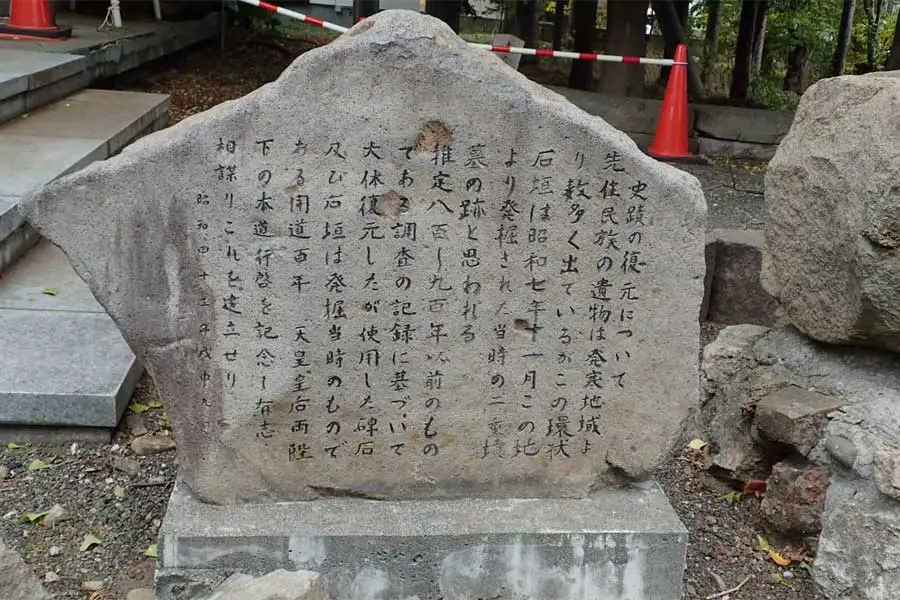 史蹟の復元について
先住民族の遺物は発寒地域よ
り数多く出ているがこの環状
石垣は昭和七年十一月この地
より発掘された当時の二重墳
墓の跡と思われる
推定八百〜九百年以前のもの
である調査の記録に基づいて
大体復元したが使用した碑石
及び石垣は発掘当時のもので
ある開道百年 天皇皇后両陛
下の本道行啓を記念し有志
相謀りこれを建立せり
昭和四十三年戊申九